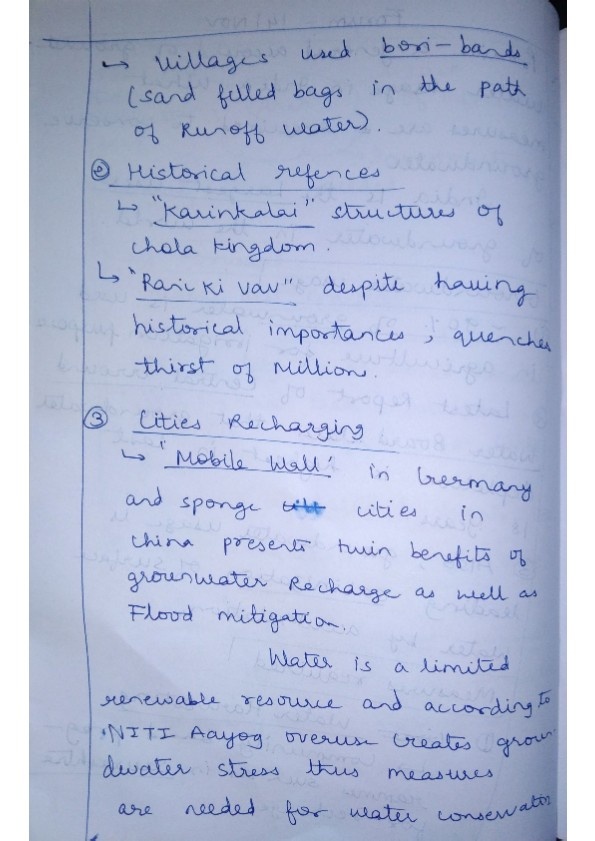 ↳ Villages used bori-bands
(sand filled bags in the path
of Runoff water).
② Historical refences
↳ "Karinkalai" structures of
chola kingdom.
↳ "Rani ki vav" despite having
historical importances, quenches
thirst of Million.
③ Cities Recharging
↳ 'Mobile Wall' in Germany
and sponge cities in
china presents twin benefits of
grounwater Recharge as well as
Flood mitigation.
Water is a limited
renewable resource and according to
NITI Aayog overuse creates groun
dwater stress thus measures
are needed for water conservation